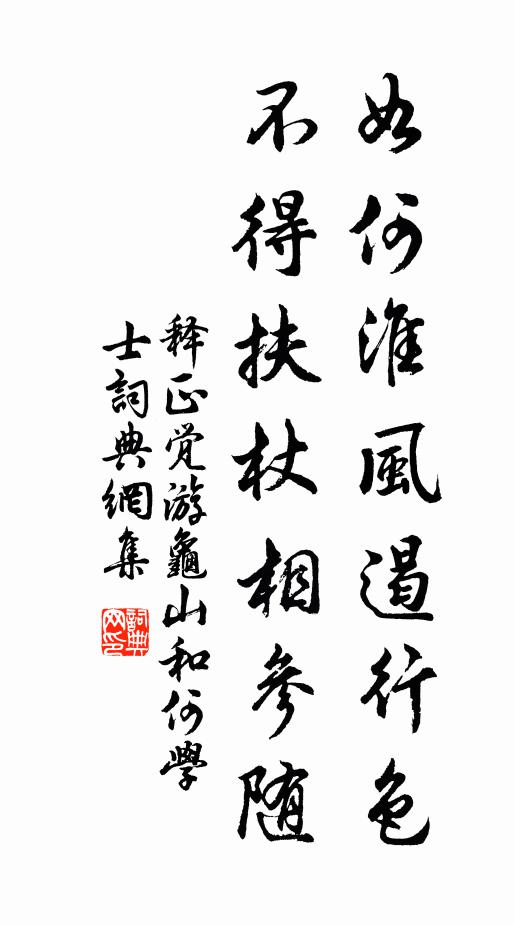 如何淮風遏行色
不得扶杖相參随
释正觉游龜山和何學
士詞典網集
詞典
网印